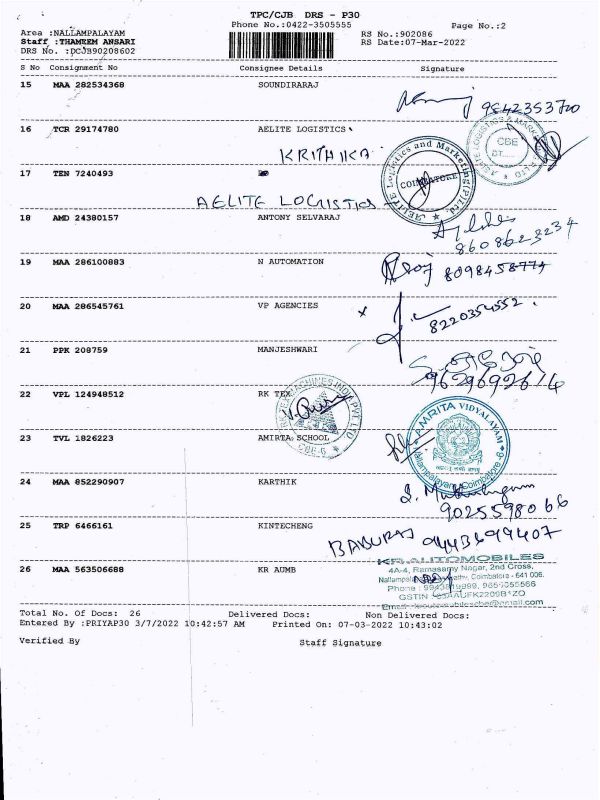 TPC/CJB DRS - P30
Phone No.:0422-3505555
Page No.:2
Area :NALLAMPALAYAM
Staff :THAMEEM ANSARI
DRS No. :DCJB90208602
RS No.:902086
RS Date:07-Mar-2022
S No Consignment No Consignee Details Signature
15 MAA 282534368 SOUNDIRARAJ
9842353700
16 TCR 29174780 AELITE LOGISTICS
KRITHIKA
CBE
17 TEN 7240493
Aelite Logistics and Marketing(P)Ltd.
COIMBATORE
AELITE LOGISTICS
18 AMD 24380157 ANTONY SELVARAJ
8608623234
19 MAA 286100883 N AUTOMATION
8098458774
20 MAA 286545761 VP AGENCIES
x
8220354552.
21 PPK 208759 MANJESHWARI
9629692614
22 VPL 124948512 RK TEX
AMRITA VIDYALAYAM
Nallampalayam, Coimbatore-6
23 TVL 1826223 AMIRTA SCHOOL
24 MAA 852290907 KARTHIK
9025598066
25 TRP 6466161 KINTECHENG
BABURAJ 9443699407
KR AUTOMOBILES
4A-4, Ramasamy Nagar, 2nd Cross,
Coimbatore - 641 006.
26 MAA 563506688 KR AUMB
Total No. Of Docs: 26 Delivered Docs: Non Delivered Docs:
Entered By :PRIYAP30 3/7/2022 10:42:57 AM Printed On: 07-03-2022 10:43:02
Verified By Staff Signature